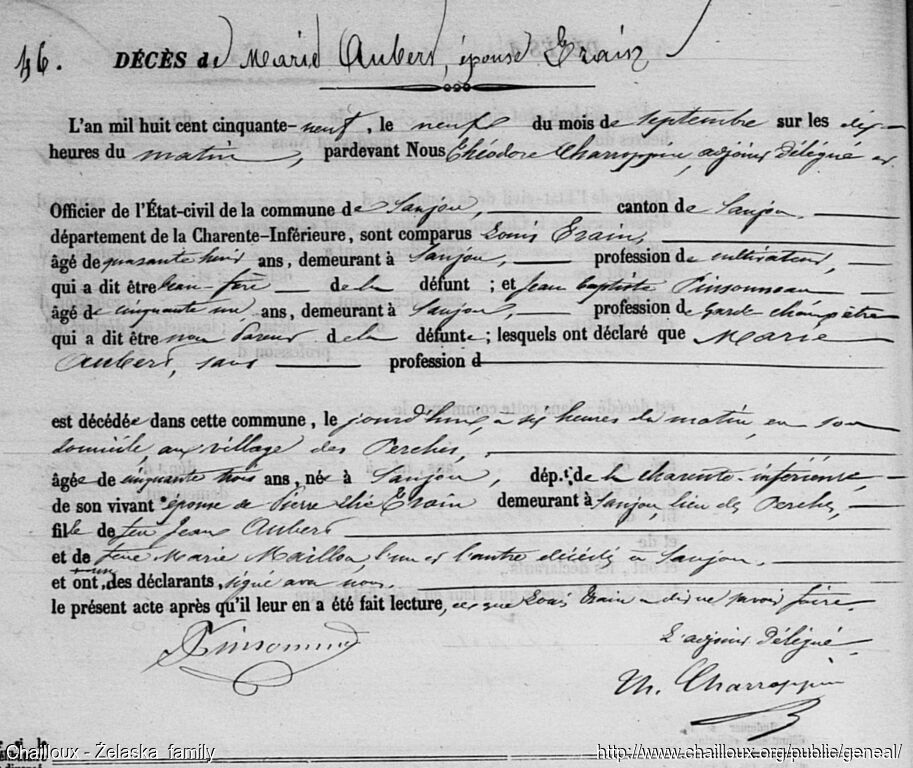 46. DÉCÈS de Marie Aubert, épouse Erain
L'an mil huit cent cinquante-neuf, le neuf du mois de septembre sur les dix
heures du matin, pardevant Nous Théodore Charroppin, adjoint délégué et
Officier de l'État-civil de la commune de Saujon, canton de Saujon
département de la Charente-Inférieure, sont comparus Louis Erain,
âgé de quarante huit ans, demeurant à Saujon, profession de cultivateur,
qui a dit être beau-frère de la défunt ; et Jean baptiste Pinsonneau
âgé de cinquante un ans, demeurant à Saujon, profession de garde champêtre
qui a dit être non Parent de la défunte ; lesquels ont déclaré que Marie
Aubert, sans profession d
est décédée dans cette commune, le jourd'hui, à six heures du matin, en son
domicile, au village des Perches,
âgée de cinquante trois ans, née à Saujon, dép.t de la charente-inférieure,
de son vivant épouse de Pierre Erain demeurant à Saujon, lieu des Perches,
fille de feu Jean Aubert
et de feue Marie Maillou, l'un et l'autre décédés à Saujon.
et ont, des déclarants, signé avec nous.
le présent acte après qu'il leur en a été fait lecture, ce que Louis Erain a dit ne savoir faire.
Pinsonneau
L'adjoint délégué,
Th. Charroppin
Chailloux - Żelaska family http://www.chailloux.org/public/geneal/